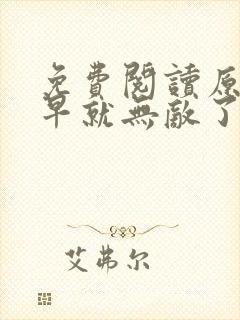 免費閱讀原
早就無敵了
艾弗尔